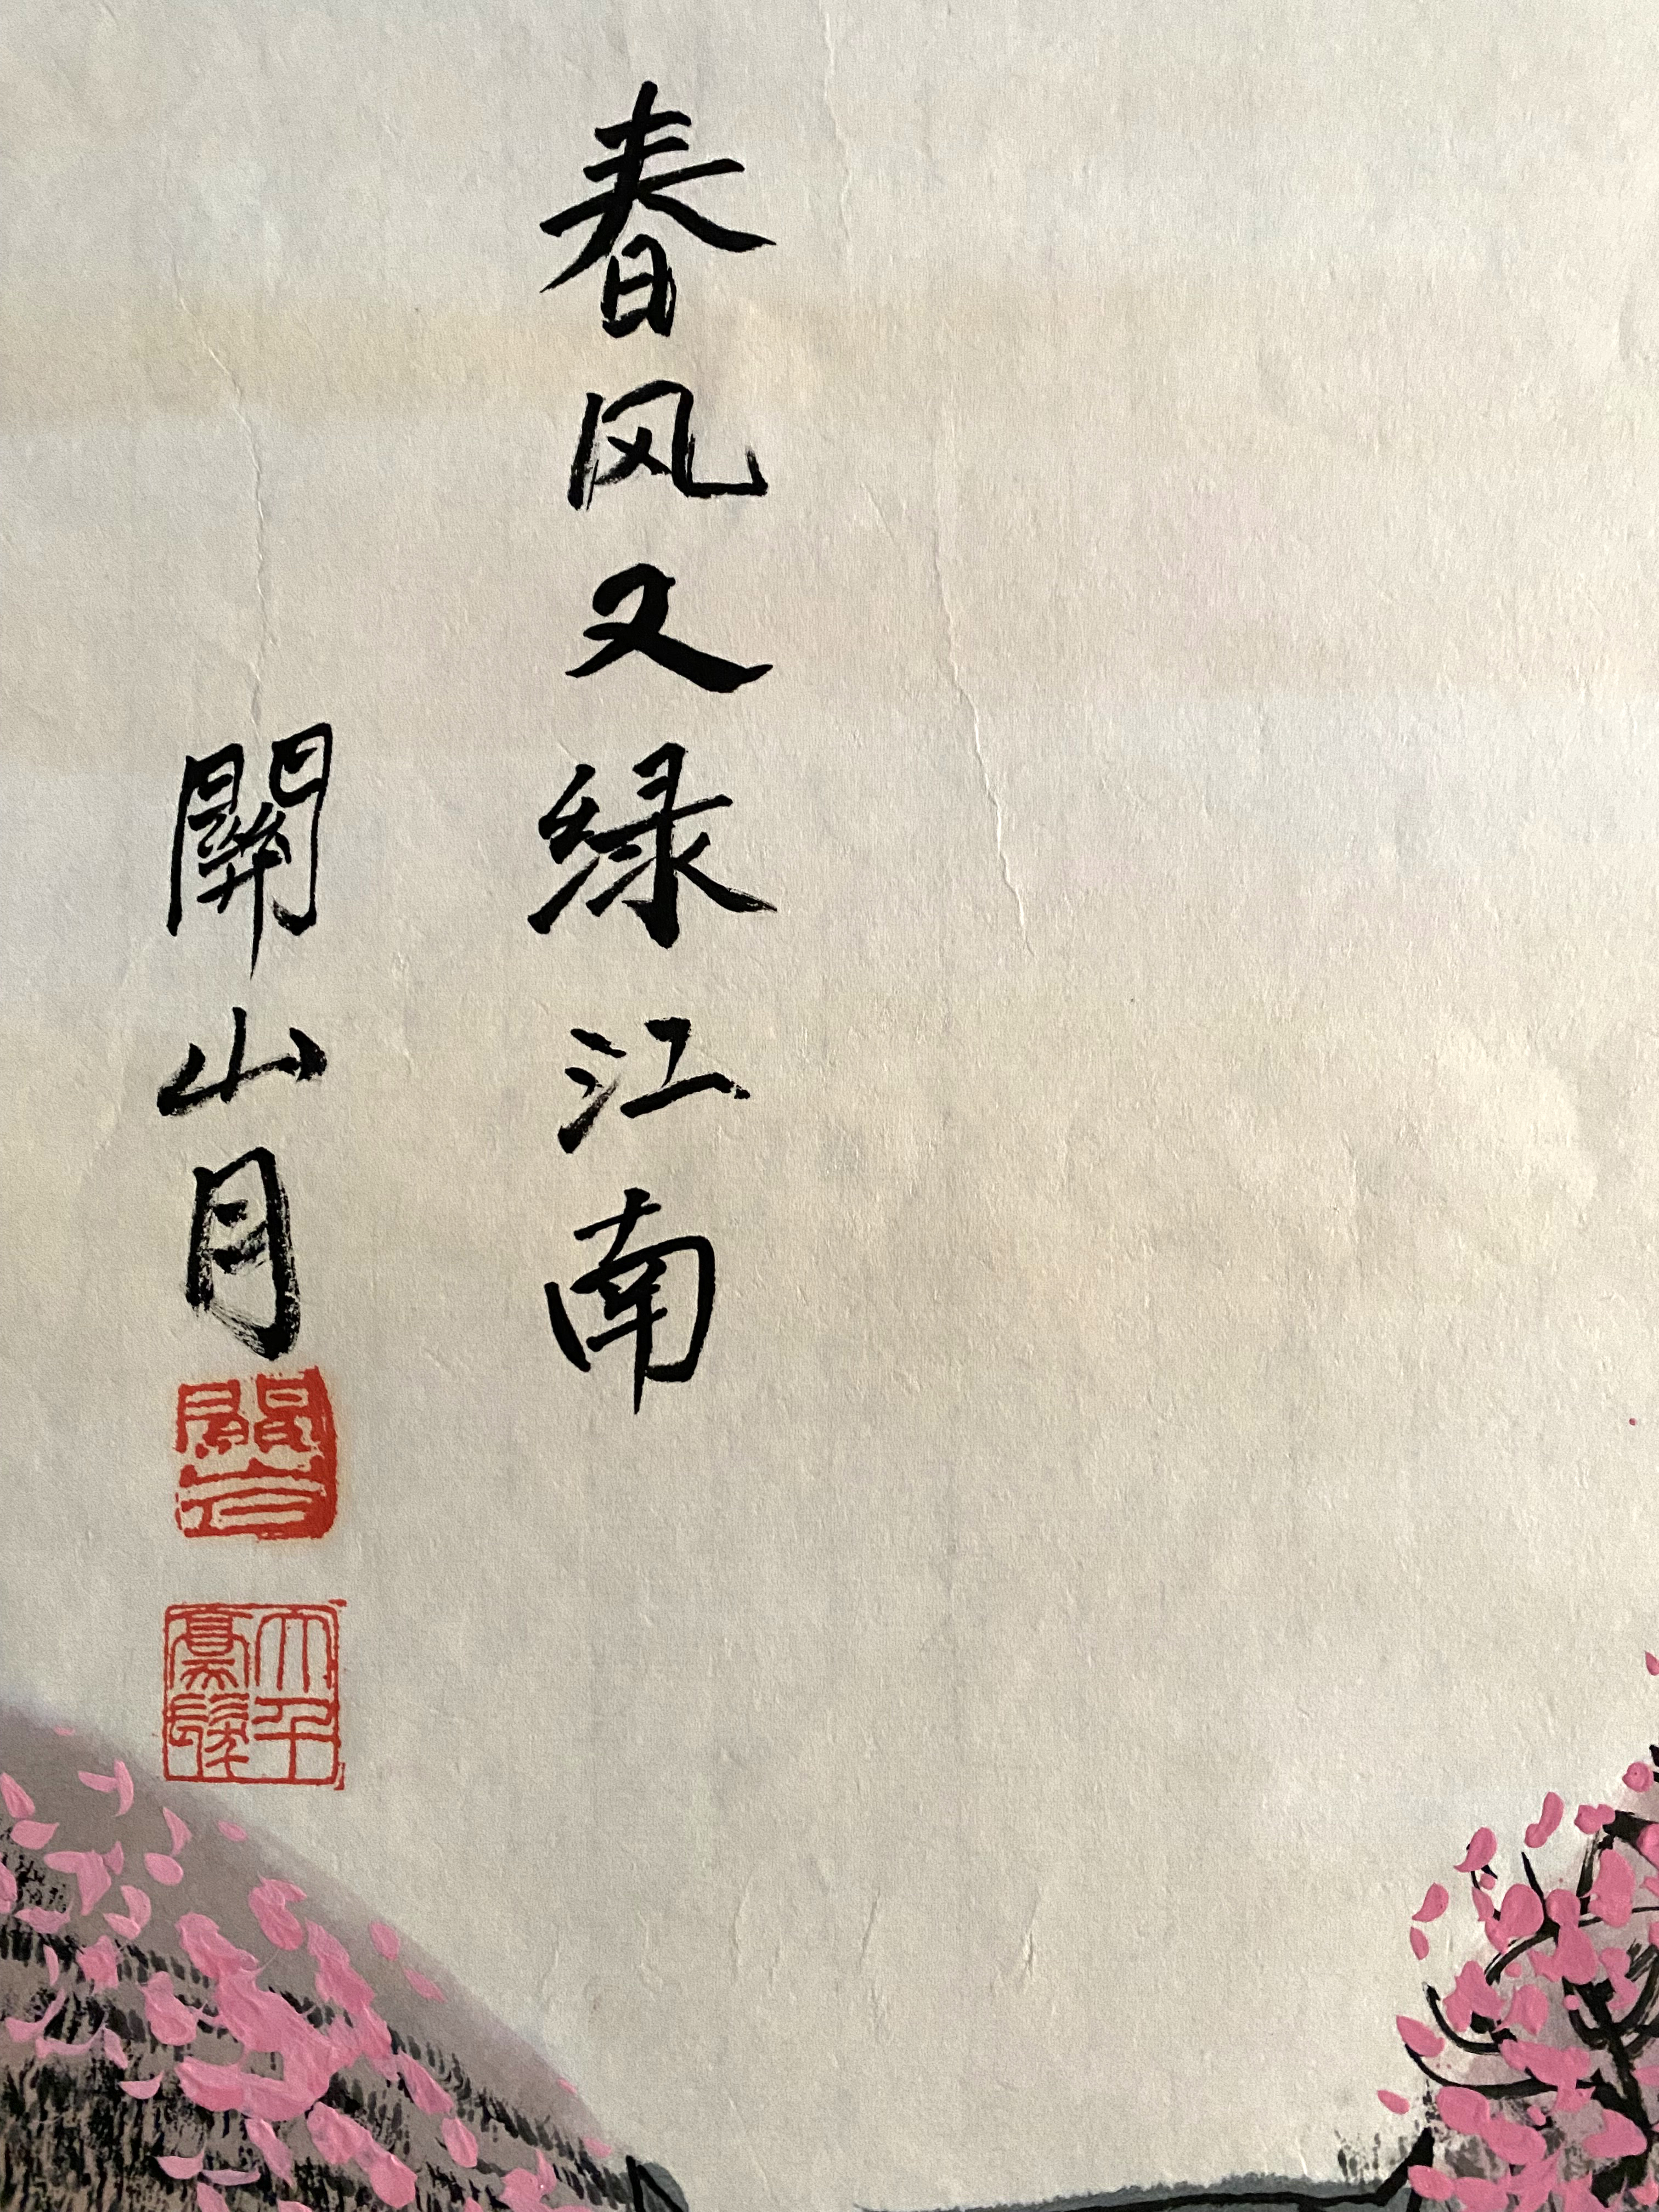 春风又绿江南
關山月